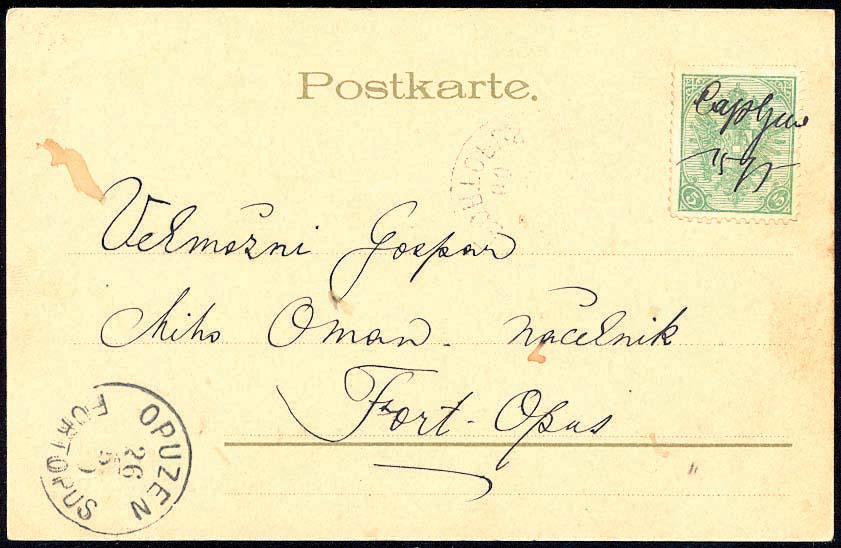 Postkarte.
Capljina
5
5
Velmožni Gospar
Miho Oman. Načelnik
Fort-Opus
OPUZEN
26
5
FORTOPUS